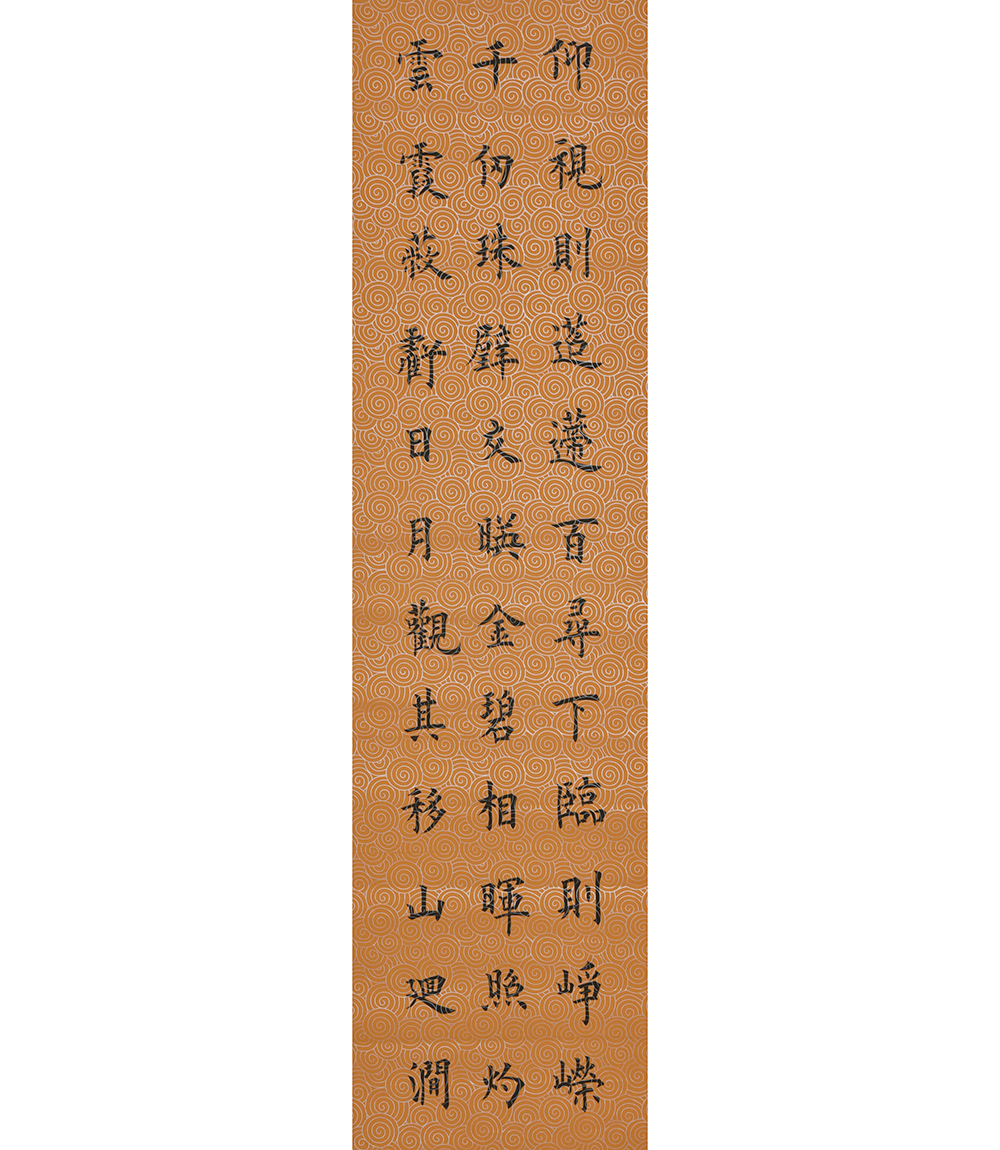 仰視則迢遰百尋下臨則崢嶸
千仞珠璧交暎金碧相暉照灼
雲霞蔽虧日月觀其移山廻澗